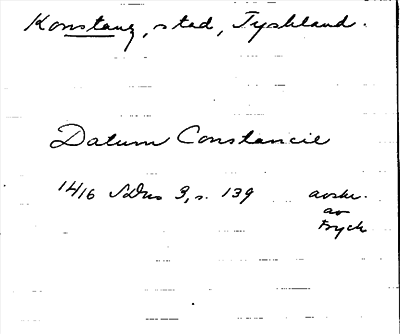 Konstanz, stad, Tyskland.
Datum Constancie
1416 SDns 3, s. 139 avskr.
av
tryck